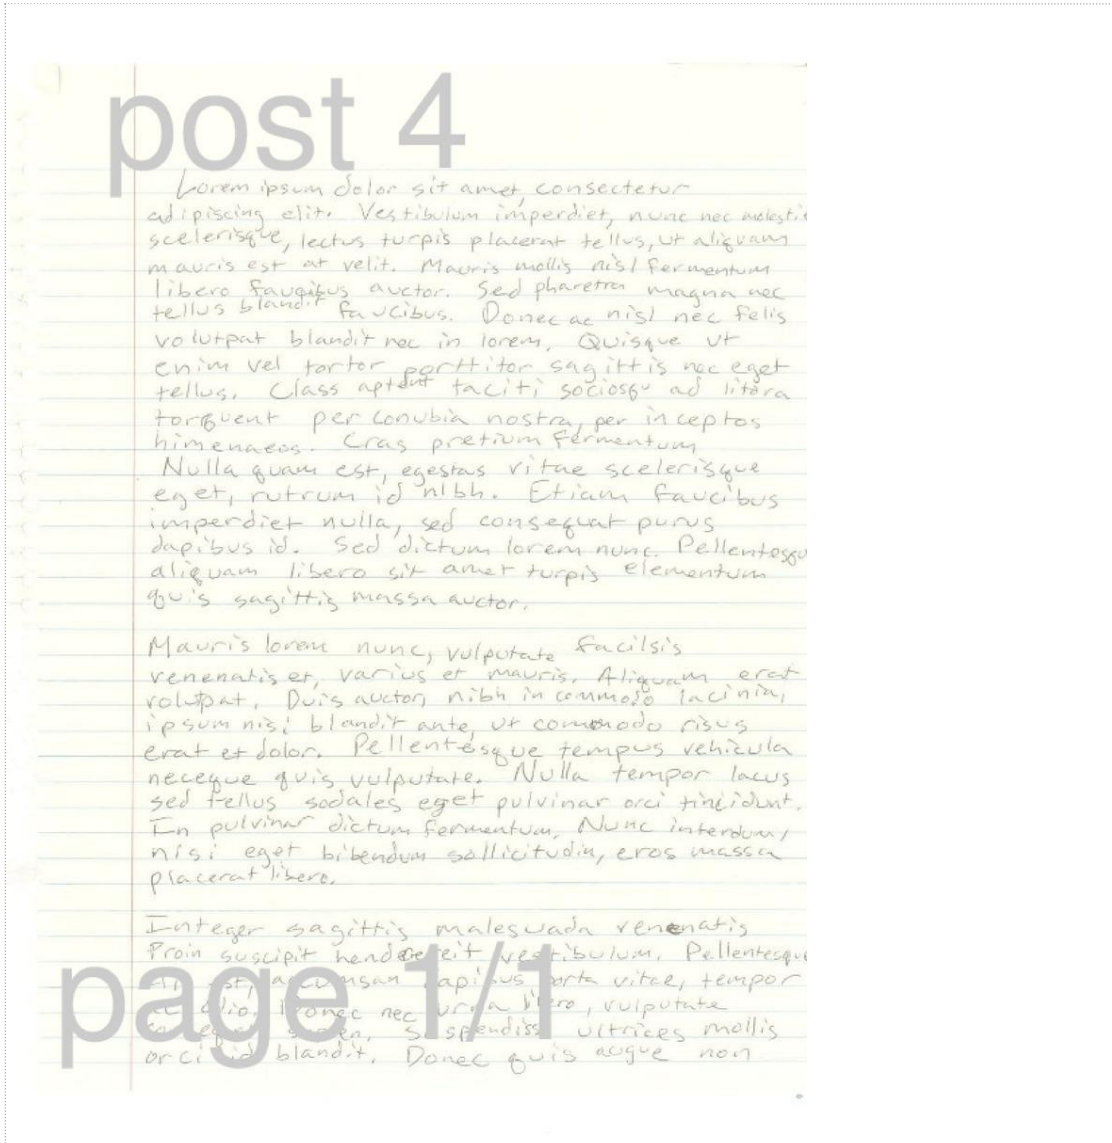 post 4
Lorem ipsum dolor sit amet, consectetur
adipiscing elit. Vestibulum imperdiet, nunc nec molesti
scelerisque, lectus turpis placerat tellus, ut aliquam
mauris est at velit. Mauris mollis nisl fermentum
libero faucibus auctor. Sed pharetra magna nec
tellus blandit faucibus. Donec ac nisl nec felis
volutpat blandit nec in lorem. Quisque ut
enim vel tortor porttitor sagittis nec eget
tellus. Class aptent taciti sociosqu ad litora
torquent per conubia nostra, per inceptos
himenaeos. Cras pretium fermentum
Nulla quam est, egestas vitae scelerisque
eget, rutrum id nibh. Etiam faucibus
imperdiet nulla, sed consequat purus
dapibus id. Sed dictum lorem nunc. Pellentesqu
aliquam libero sit amet turpis elementum
quis sagittis massa auctor.
Mauris lorem nunc, vulputate facilsis
venenatis et, varius et mauris. Aliquam erat
volutpat. Duis auctor, nibh in commodo lacinia,
ipsum nisi blandit ante, ut commodo risus
erat et dolor. Pellentesque tempus vehicula
neceque quis vulputate. Nulla tempor lacus
sed tellus sodales eget pulvinar orci tincidunt.
In pulvinar dictum fermentum. Nunc interdum,
nisi eget bibendum sollicitudin, eros massa
placerat libero.
Integer sagittis malesuada venenatis
Proin suscipit hendrereit vestibulum. Pellentesque
accumsan dapibus porta vitae, tempor
odio. Donec nec urna libero, vulputate
Suspendisse ultrices mollis
orci id blandit. Donec quis augue non
page 1/1